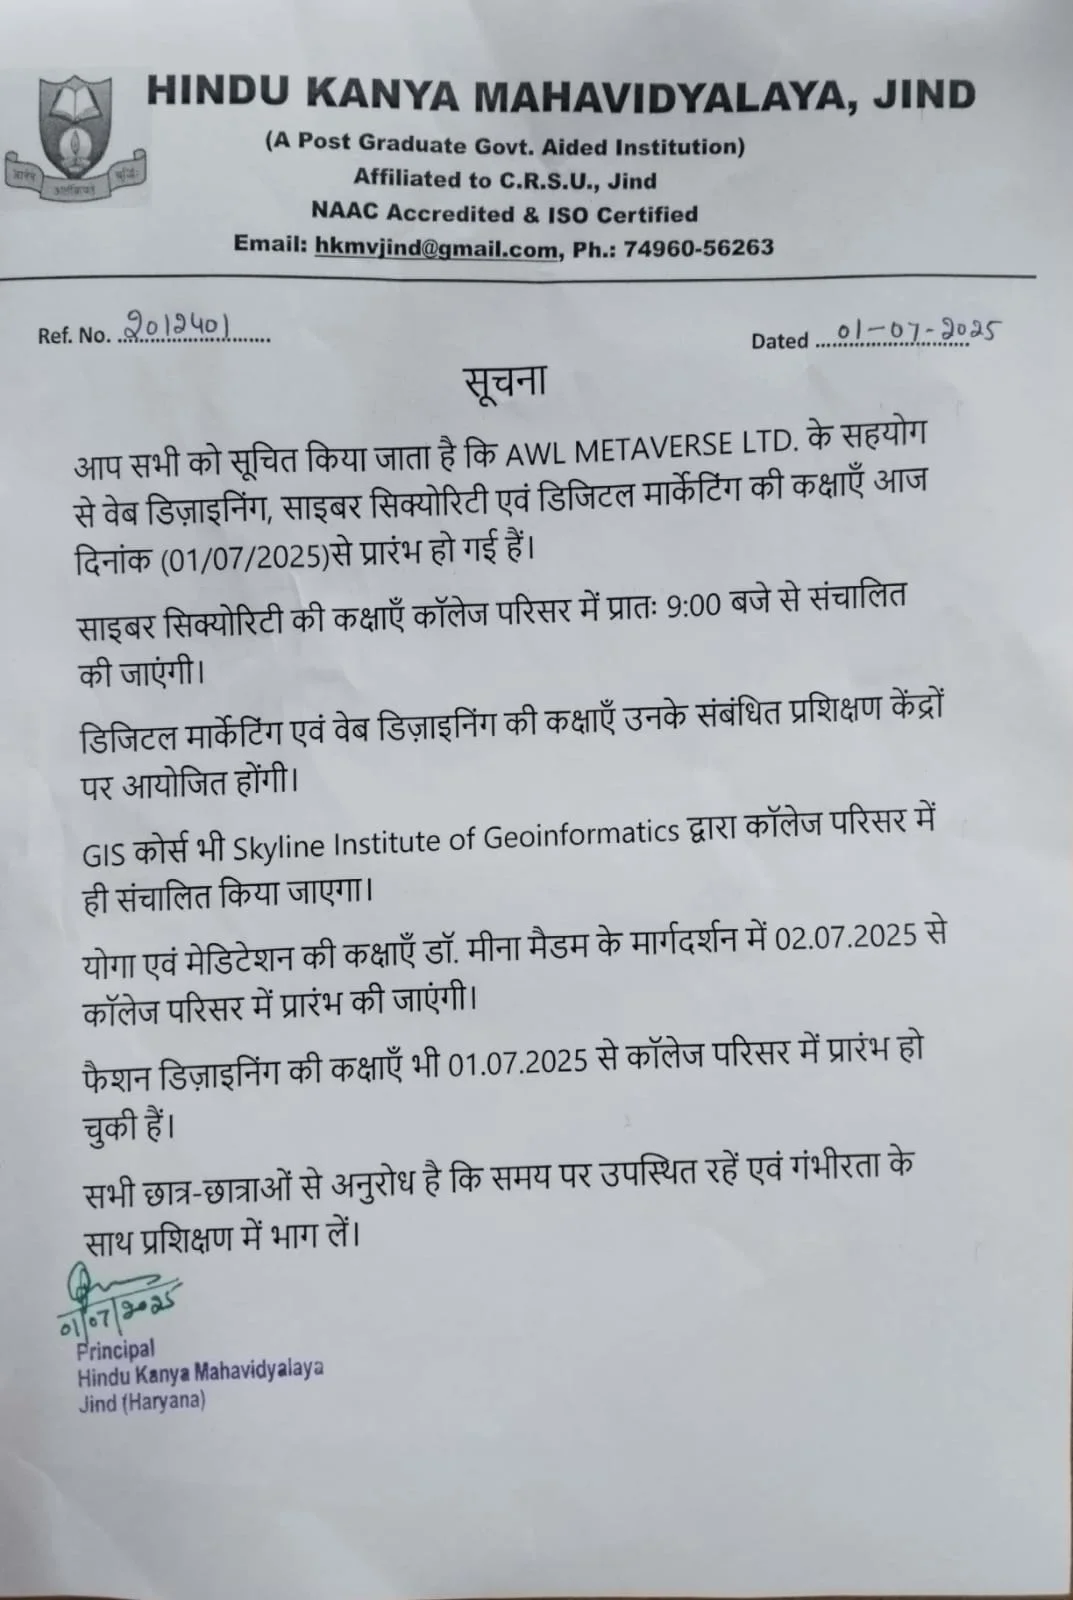 HINDU KANYA MAHAVIDYALAYA, JIND
(A Post Graduate Govt. Aided Institution)
Affiliated to C.R.S.U., Jind
NAAC Accredited & ISO Certified
Email: hkmvjind@gmail.com, Ph.: 74960-56263
Ref. No. 2012401
Dated 01-07-2025
सूचना
आप सभी को सूचित किया जाता है कि AWL METAVERSE LTD. के सहयोग
से वेब डिज़ाइनिंग, साइबर सिक्योरिटी एवं डिजिटल मार्केटिंग की कक्षाएँ आज
दिनांक (01/07/2025)से प्रारंभ हो गई हैं।
साइबर सिक्योरिटी की कक्षाएँ कॉलेज परिसर में प्रातः 9:00 बजे से संचालित
की जाएंगी।
डिजिटल मार्केटिंग एवं वेब डिज़ाइनिंग की कक्षाएँ उनके संबंधित प्रशिक्षण केंद्रों
पर आयोजित होंगी।
GIS कोर्स भी Skyline Institute of Geoinformatics द्वारा कॉलेज परिसर में
ही संचालित किया जाएगा।
योगा एवं मेडिटेशन की कक्षाएँ डॉ. मीना मैडम के मार्गदर्शन में 02.07.2025 से
कॉलेज परिसर में प्रारंभ की जाएंगी।
फैशन डिज़ाइनिंग की कक्षाएँ भी 01.07.2025 से कॉलेज परिसर में प्रारंभ हो
चुकी हैं।
सभी छात्र-छात्राओं से अनुरोध है कि समय पर उपस्थित रहें एवं गंभीरता के
साथ प्रशिक्षण में भाग लें।
01/07/2025
Principal
Hindu Kanya Mahavidyalaya
Jind (Haryana)